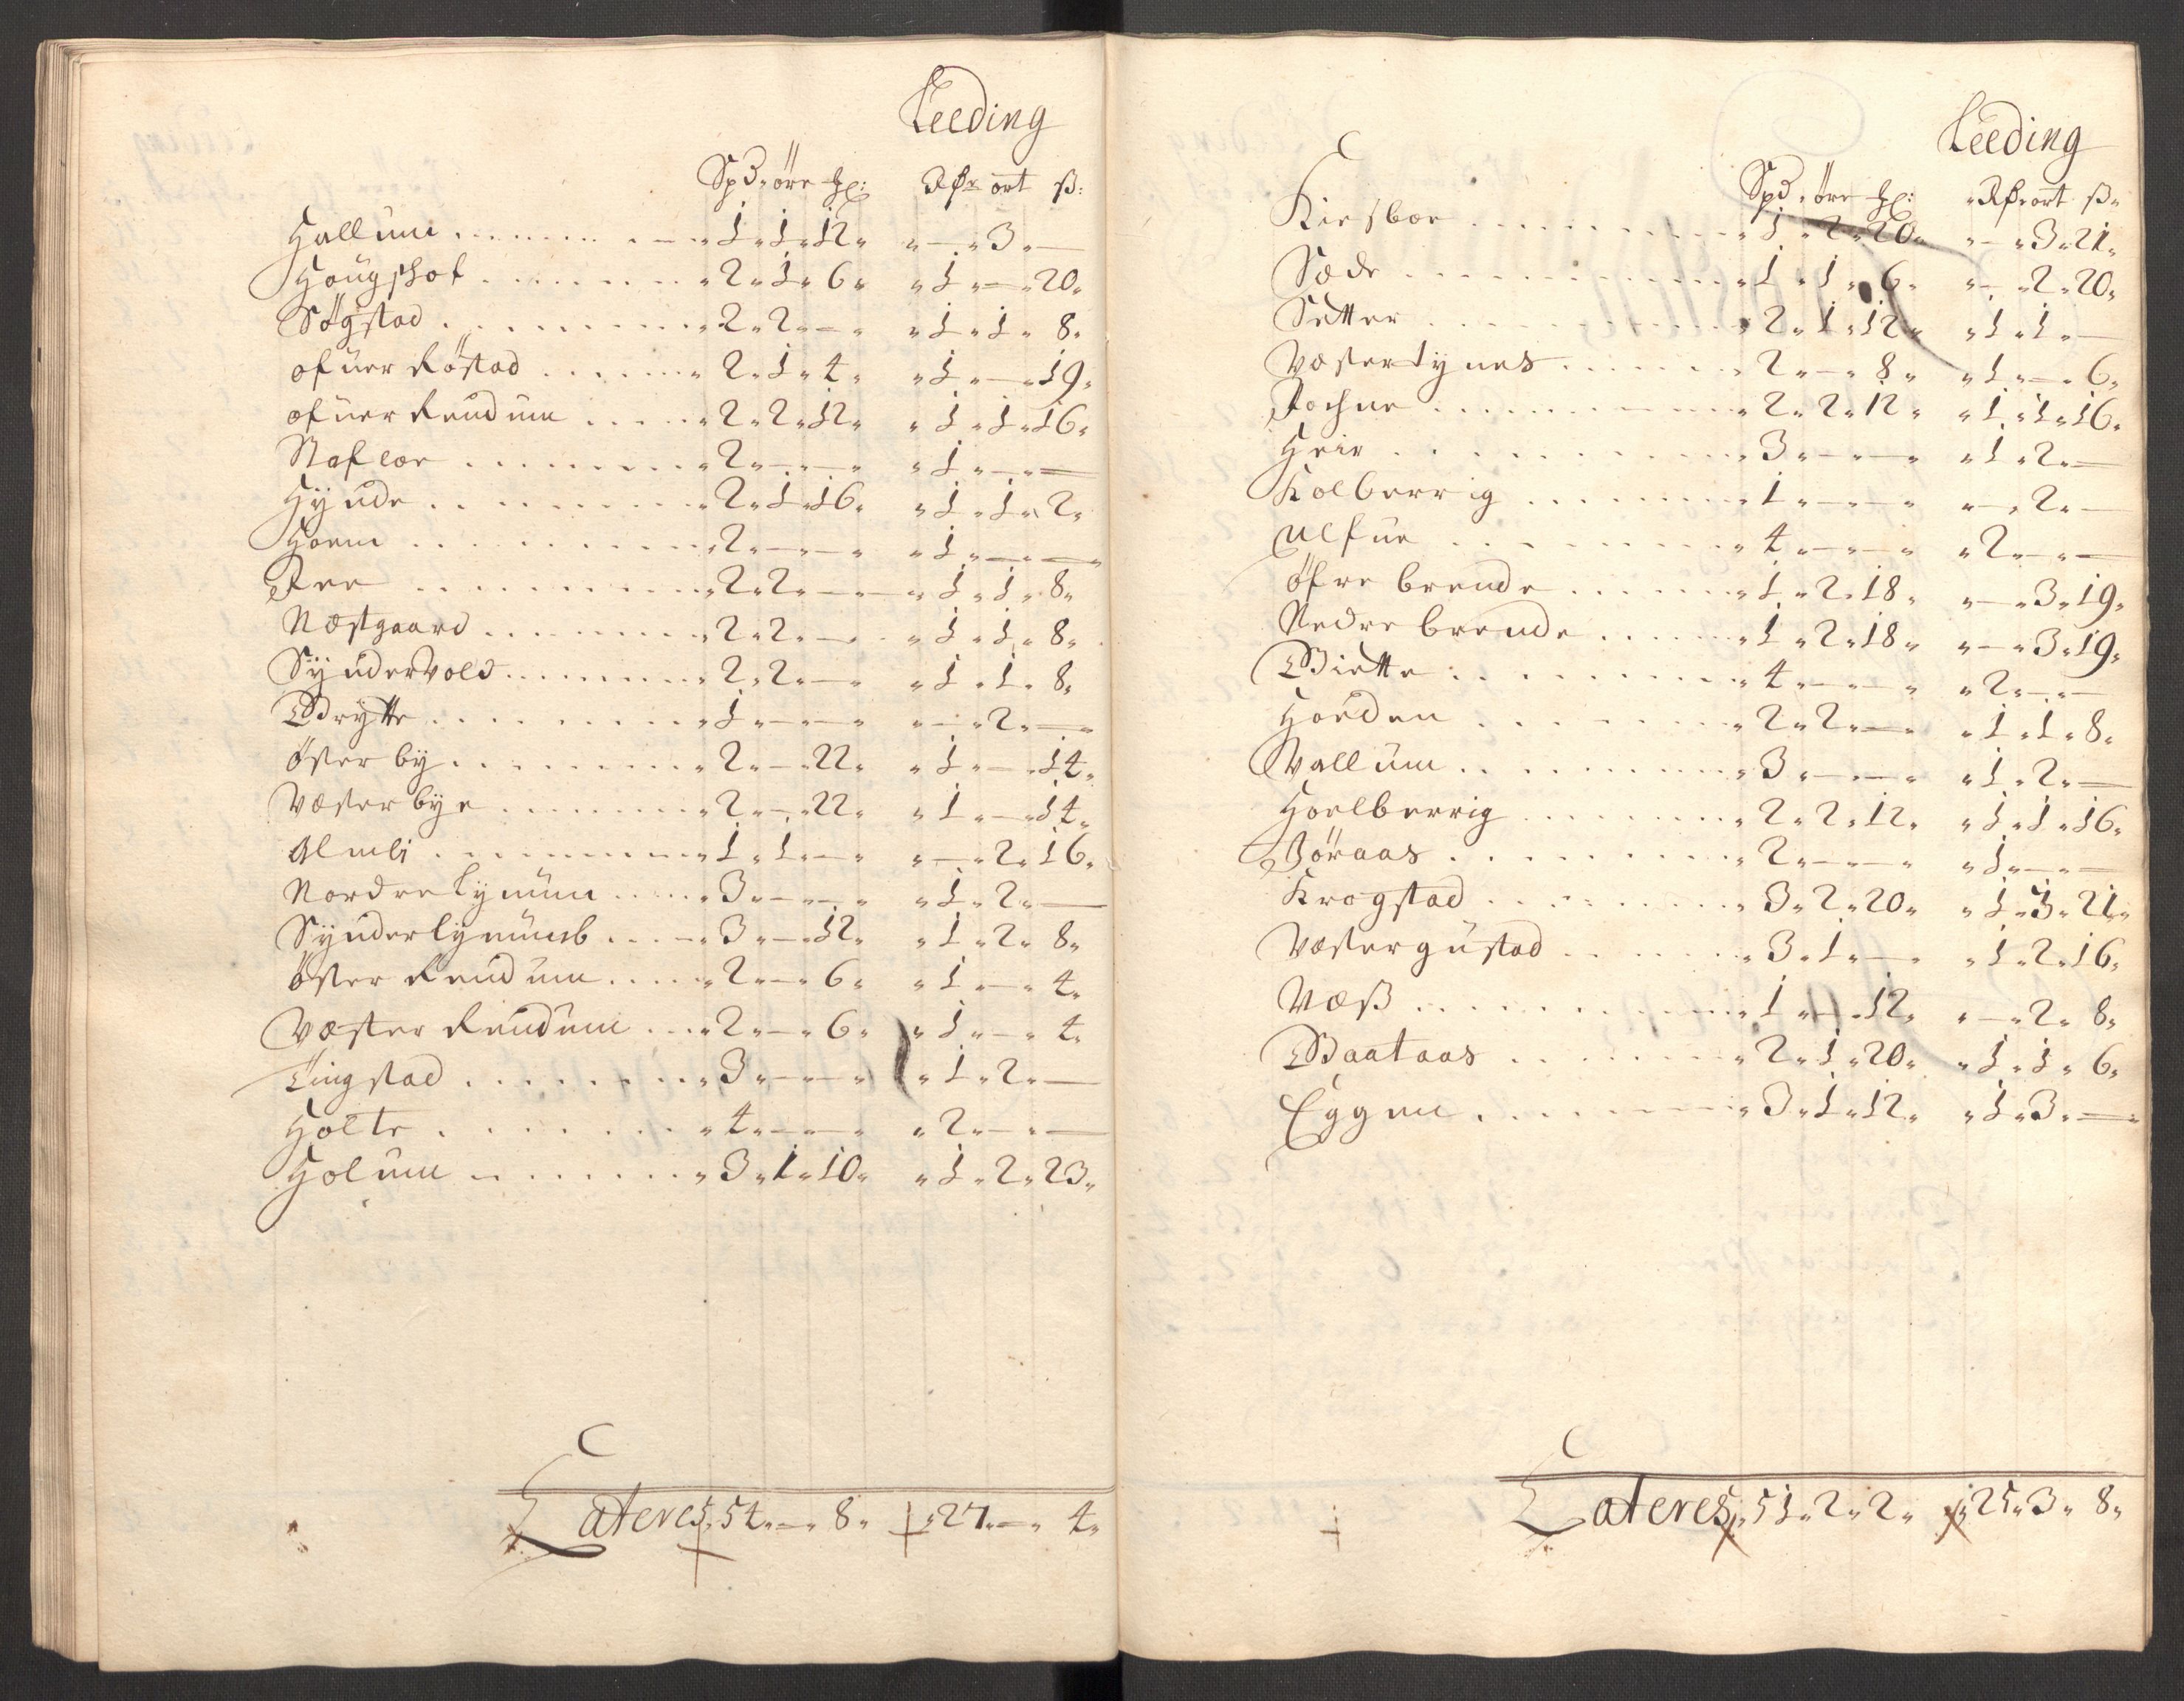 Leeding
Spd " öre " : Rdr ort ß:
Hallum . . . . . . . . . " 1 " 1 " 12 " " — " 3 " —
Hougshol . . . . . . . . " 2 " 1 " 6 " " 1 " — " 20 "
Søgstad . . . . . . . . . " 2 " 2 " — " " 1 " 1 " 8 "
ofuer Röstad . . . . . . " 2 " 1 " 4 " " 1 " — " 19 "
ofuer Rendum . . . . " 2 " 2 " 12 " " 1 " 1 " 16 "
Nafloe . . . . . . . . " 2 " — " — " " 1 " — " —
Hÿnde . . . . . . . . " 2 " 1 " 16 " " 1 " 1 " 2 "
Hoem . . . . . . . . " 2 " — " — " " 1 " — " —
Ree . . . . . . . . " 2 " 2 " — " 1 " 1 " 8 "
Næstgaard . . . . . . . " 2 " 2 " — " " 1 " 1 " 8 "
Sÿndervold . . . . . . . " 2 " 2 " — " " 1 " 1 " 8 "
Brÿtte . . . . . . . . " 1 " — " — " " — " 2 " —
öster bÿ . . . . . . . . " 2 " — " 22 " " 1 " — " 14 "
Væster bÿe . . . . . . . " 2 " — " 22 " " 1 " — " 14 "
Almli . . . . . . . . " 1 " 1 " — " " — " 2 " 16 "
Nordre lÿnum . . . . " 3 " — " — " " 1 " 2 " —
Sÿnder lÿnumb . . . . " 3 " — " 12 " " 1 " 2 " 8 "
öster Rendum . . . . " 2 " — " 6 " " 1 " — " 4 "
Væster Rendum . . . " 2 " — " 6 " " 1 " — " 4 "
Tingstad . . . . . . . . " 3 " — " — " " 1 " 2 " —
Holte . . . . . . . " 4 " — " — " " 2 " — " —
Holum . . . . . . . " 3 " 1 " 10 " " 1 " 2 " 23 "
Lateres " 54 " — " 8 " " 27 " — " 4 "
Leeding
Spd " öre " : " Rdr ort ß "
Kirsboe . . . . . . . . . " 1 " 2 " 20 " " — " 3 " 21 "
Sæde . . . . . . . . . " 1 " 1 " 6 " " — " 2 " 20 "
Sætter . . . . . . . . . " 2 " 1 " 12 " " 1 " 1 " —
Væsterlÿnes . . . . . . . " 2 " — " 8 " " 1 " — " 6 "
Fochne . . . . . . . . . " 2 " 2 " 12 " " 1 " 1 " 16 "
Heir . . . . . . . . . " 3 " — " — " " 1 " 2 " —
Kolberrig . . . . . . . . " 1 " — " — " " — " 2 " —
Ulfue . . . . . . . . . " 4 " — " — " " 2 " — " —
öfre brende . . . . . . . " 1 " 2 " 18 " " — " 3 " 19 "
Nedre brende . . . . . . " 1 " 2 " 18 " " — " 3 " 19 "
Biette . . . . . . . . . " 4 " — " — " " 2 " — " —
Houden . . . . . . . . . " 2 " 2 " — " " 1 " 1 " 8 "
Vallum . . . . . . . . . " 3 " — " — " " 1 " 2 " —
Hoelberrig . . . . . . . . " 2 " 2 " 12 " " 1 " 1 " 16 "
Böraas . . . . . . . . . " 2 " — " — " " 1 " — " —
Krogstad . . . . . . . . " 3 " 2 " 20 " " 1 " 3 " 21 "
Væstergustad . . . . . . " 3 " 1 " — " " 1 " 2 " 16 "
Væß . . . . . . . . . " 1 " — " 12 " " — " 2 " 8 "
Baataas . . . . . . . . " 2 " 1 " 20 " " 1 " 1 " 6 "
Eggen . . . . . . . . " 3 " 1 " 12 " " 1 " 3 " —
Lateres " 51 " 2 " 2 " " 25 " 3 " 8 "